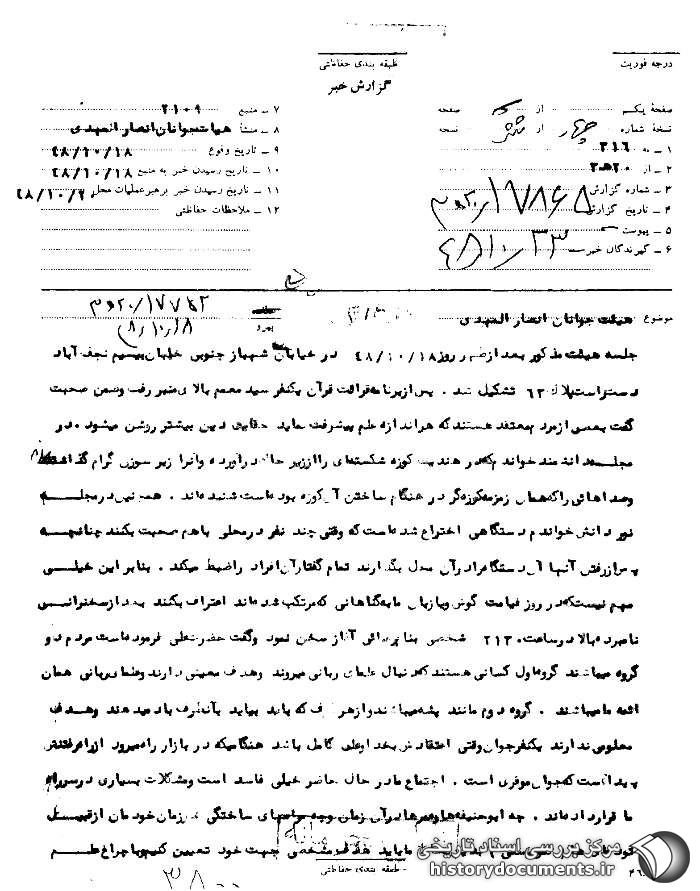 درجه فوریت
طبقه بندی حفاظتی
گزارش خبر
صفحهٔ یکم از صفحه
نسخهٔ شماره چهار از شش نسخه
۱ ـ به ۳۱۶
۲ ـ از ۲۰ه۳
۳ ـ شماره گزارش ۱۷۸۶۵
۴ ـ تاریخ گزارش
۵ ـ پیوست
۶ ـ گیرندگان خبر
۷ ـ منبع ۲۱۰۹
۸ ـ منشأ هیات جوانان انصار المهدی
۹ ـ تاریخ وقوع ۴۸/۱۰/۱۸
۱۰ ـ تاریخ رسیدن خبر به منبع ۴۸/۱۰/۱۸
۱۱ ـ تاریخ رسیدن خبر برهبر عملیات محل
۱۲ ـ ملاحظات حفاظتی
موضوع هیئت جوانان انصار المهدی
پیرو
جلسه هیئت مذکور بعد از ظهر روز ۴۸/۱۰/۱۸ در خیابان شهباز جنوبی خیابان بیسیم نجف آباد
دست راست پلاک ۶۲ تشکیل شد . پس از برنامه قرائت قرآن یکنفر سید معمم بالای منبر رفت وضمن صحبت
گفت بعضی از مردم معتقد هستند که هر اندازه علم پیشرفت نماید حقایق دین بیشتر روشن میشود . در
مجله دانشمند خواندم که در هند یک کوزه شکسته‌ای را از زیر خاک درآورده وآنرا زیر سوزن گرام گذاشته
وصداهائی را که همان زمزمه کوزه‌گر در هنگام ساختن آن کوزه بوده است شنیده‌اند . همچنین در مجله
نور دانش خواندم دستگاهی اختراع شده است که وقتی چند نفر در محلی باهم صحبت بکنند چنانچه
پس از رفتن آنها آن دستگاه را در آن محل بگذارند تمام گفتار آن افراد را ضبط میکند . بنابر این خیلی
مهم نیست که در روز قیامت گوش وپا زبان مابه گناهانی که مرتکب شده‌اند اعتراف بکنند بعد از سخنرانی
نامبرده بالا در ساعت ۲۱۳۰ شخصی بنام آغاز سخن نمود وگفت حضرت علی فرموده است مردم دو
گروه میباشند گروه اول کسانی هستند که دنبال علمای ربانی میروند وهدف معینی دارند وعلماء ربانی همان
ائمه ما میباشند . گروه دوم مانند پشه میباشند واز هر طرف که باد بیاید بآنطرف باد میدهند وهدف
معلومی ندارند یکنفر جوان وقتی اعتقادش بخدا وعلی کامل باشد هنگامیکه در بازار راه میرود از راه رفتنش
پیداست که جوان موقری است . اجتماع ما در حال حاضر خیلی فاسد است ومشکلات بسیاری در سر راه
ما قرار داده‌اند . چه ابوحنیفه‌ها در آن زمان وچه ساختگی در زمان خودمان از قبیل
ما باید هدف مشخصی جهت خود تعیین کنیم وبا چراغ علم
طبقه بندی حفاظتی
مرکز بررسی اسناد تاریخی
historydocuments.ir